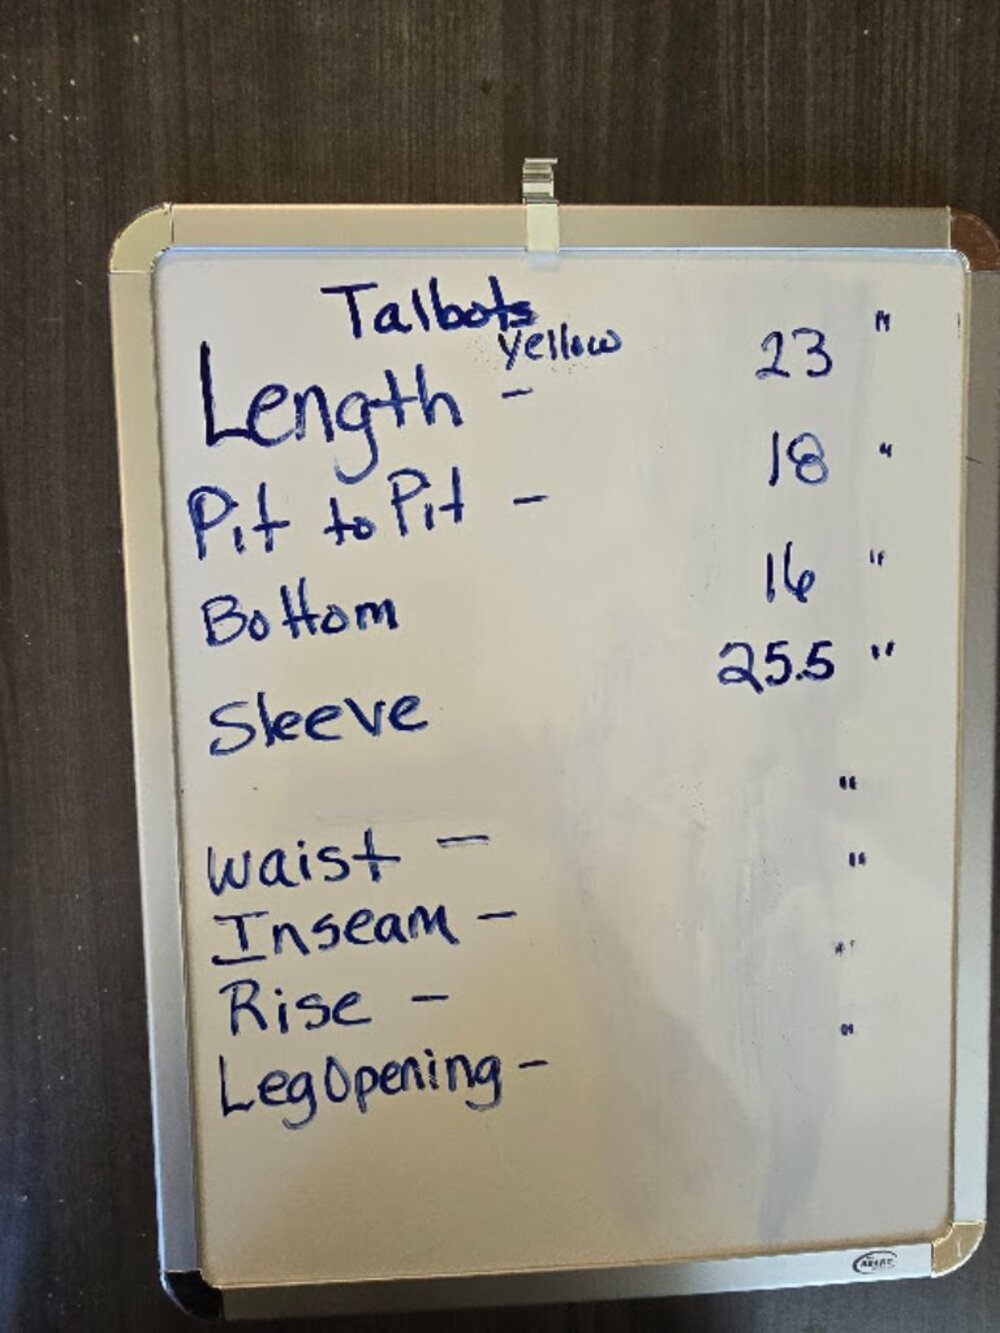 Talbots
yellow
Length - 23 "
Pit to Pit - 18 "
Bottom 16 "
Sleeve 25.5 "
"
Waist - "
Inseam - "
Rise - "
Leg Opening -